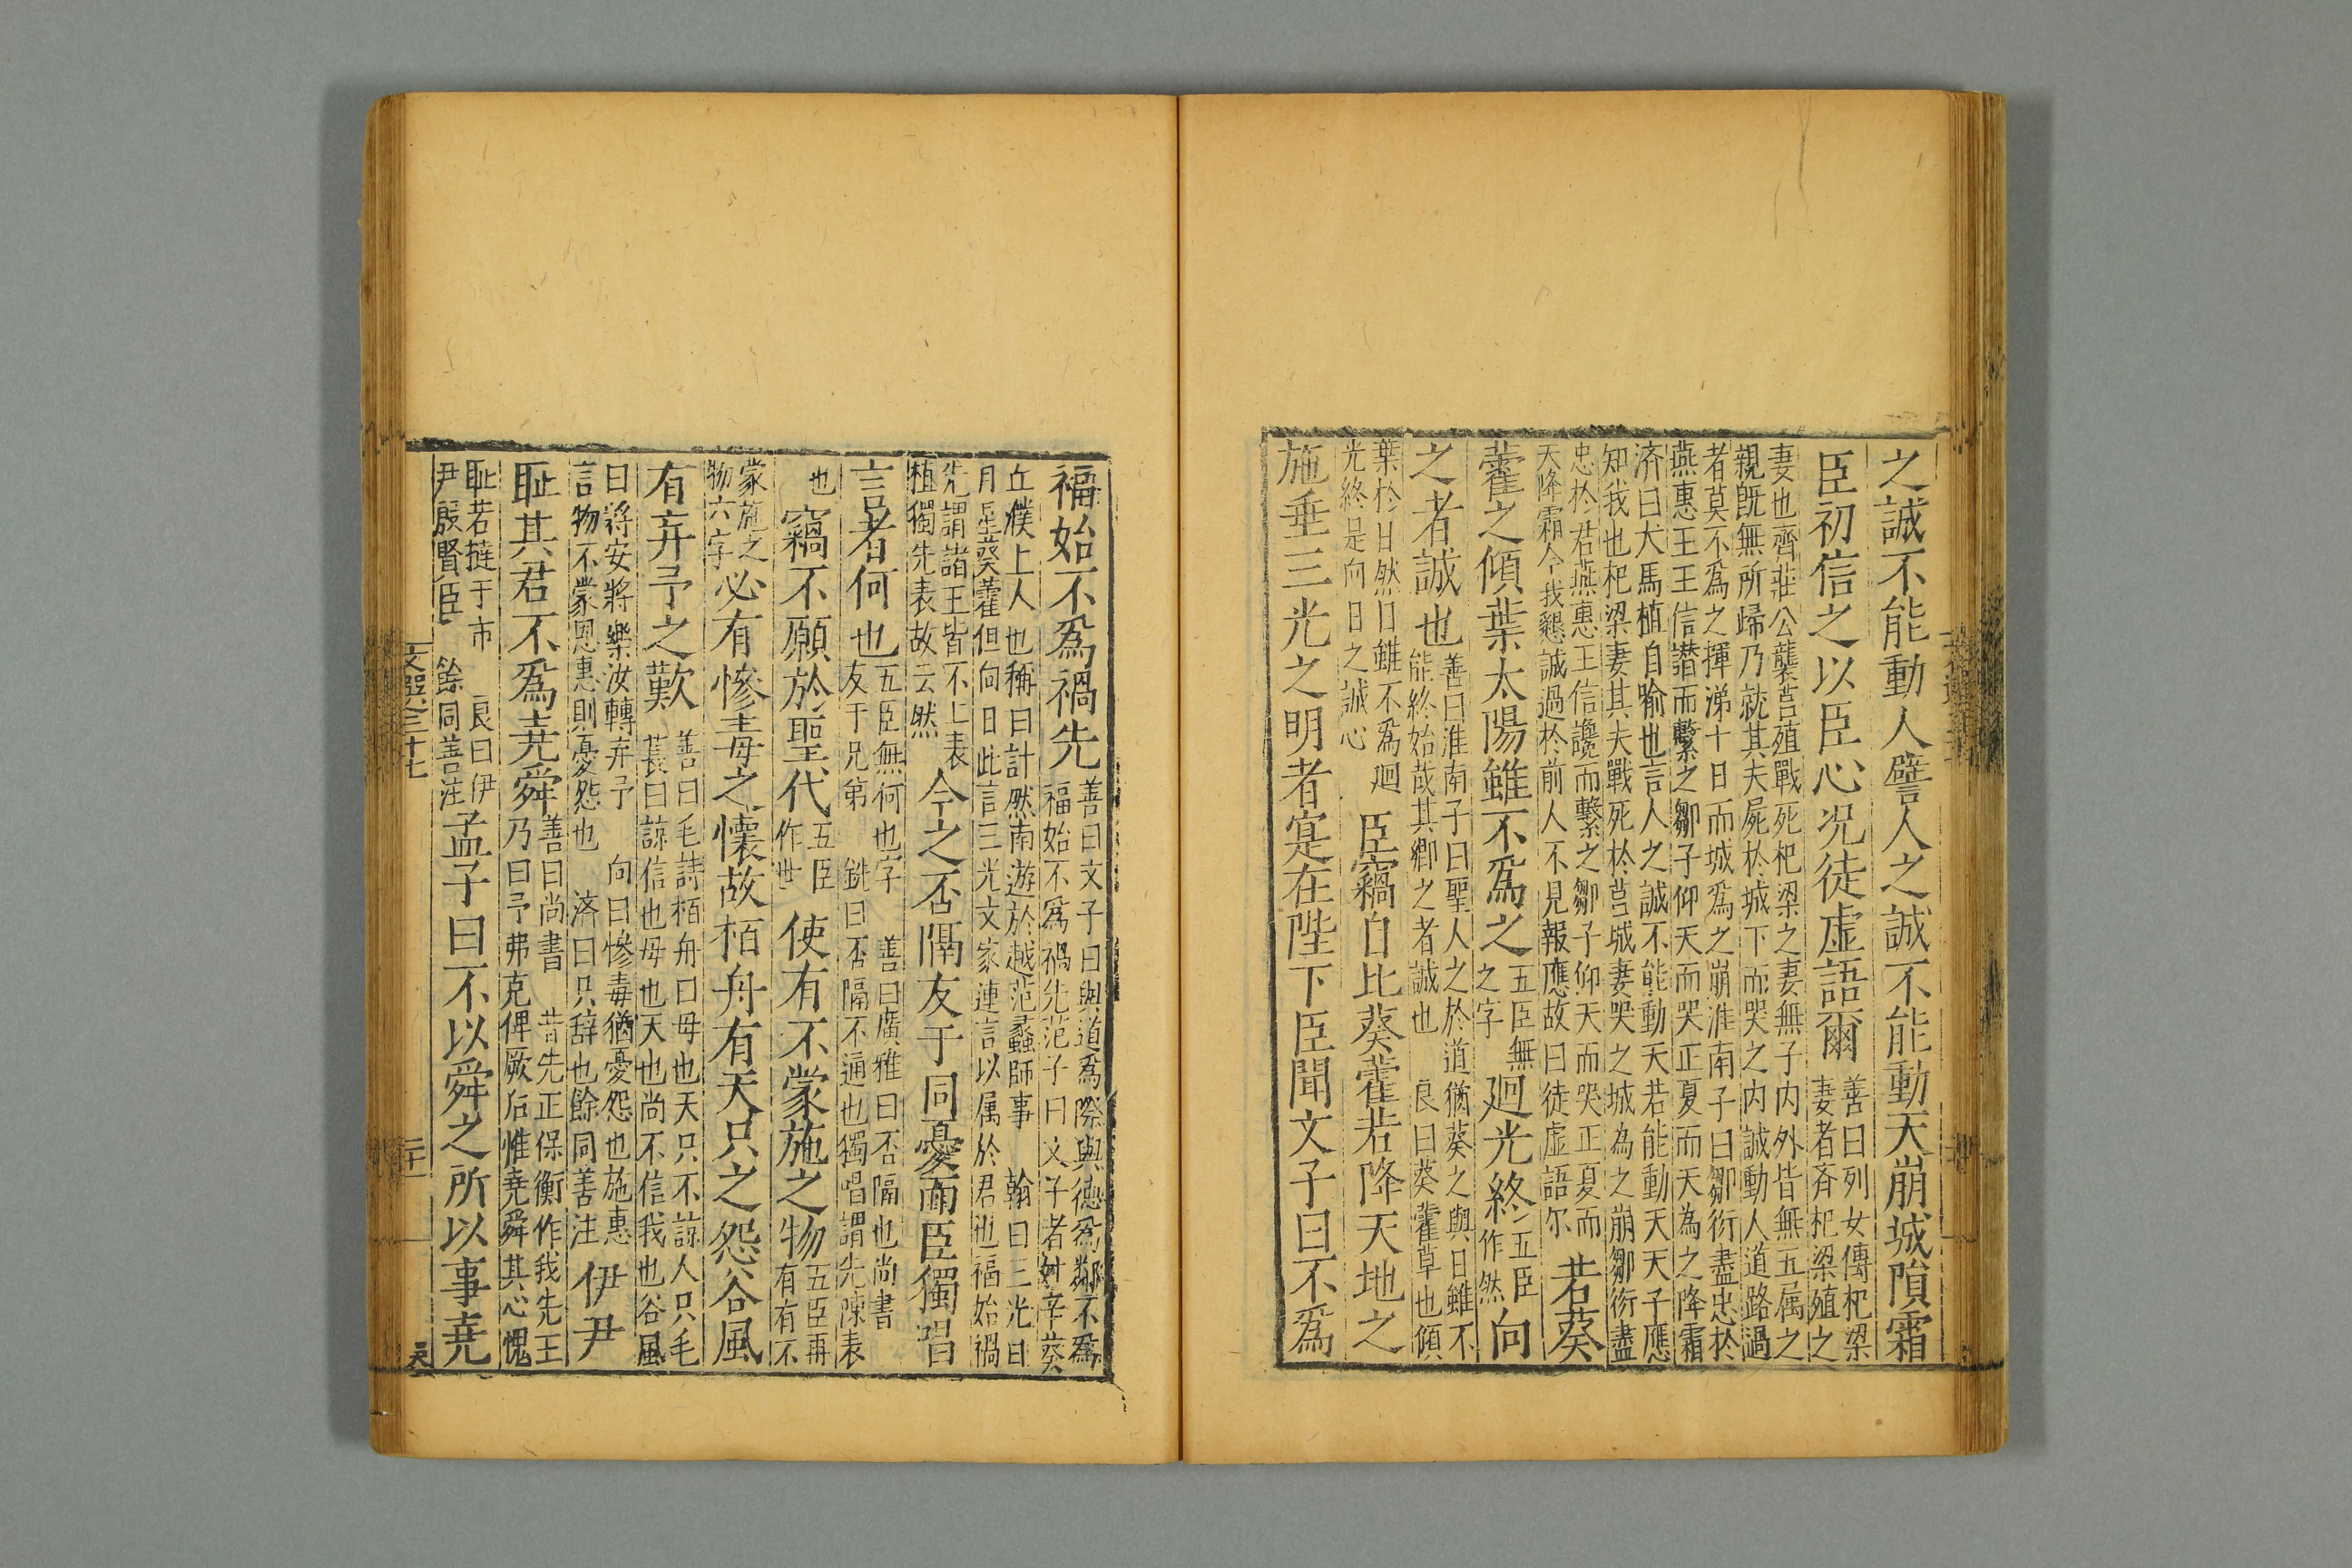 之誠不能動人譬人之誠不能動天崩城隕霜
臣初信之以臣心况徒虚語爾
善曰列女傳杞梁
妻者斉杞梁殖之
妻也齊莊公襲莒殖戰死杞梁之妻無子内外皆無五属之
親既無所歸乃就其夫屍於城下而哭之内誠動人道路過
者莫不爲之揮涕十日而城爲之崩淮南子曰鄒衍盡忠於
燕惠王王信譖而繫之鄒子仰天而哭正夏而天為之降霜
济曰犬馬植自喻也言人之誠不能動天若能動天天子應
知我也杞梁妻其夫戰死於莒城妻哭之城為之崩鄒衍盡
忠於君燕惠王信讒而繫之鄒子仰天而哭正夏而
天降霜今我懇誠過於前人不見報應故曰徒虚語尔
若葵
藿之傾葉太陽雖不爲之
五臣無
之字
廻光終
五臣
作然
向
之者誠也
善曰淮南子曰聖人之於道猶葵之與日雖不
能終始哉其鄉之者誠也 良曰葵藿草也傾
葉於日然日雖不為廻
光終是向日之誠心
臣竊自比葵藿若降天地之
施垂三光之明者寔在陛下臣聞文子曰不爲
福始不爲禍先
善曰文子曰與道爲際與德爲鄰不爲
福始不爲禍先范子曰文子者姓辛葵
丘濮上人也稱曰計然南游於越范蠡師事 翰曰三光日
月星葵藿但向日此言三光文家連言以属於君也福始禍
先謂諸王皆不上表
植獨先表故云然
今之否隔友于同憂而臣獨唱
言者何也
五臣無何也字 善曰廣雅曰否隔也尚書
友于兄弟 銑曰否隔不通也獨唱謂先陳表
也
竊不願於聖代
五臣
作世
使有不蒙施之物
五臣再
有有不
蒙施之
物六字
必有慘毒之懷故栢舟有天只之怨谷風
有弃予之歎
善曰毛詩栢舟曰母也天只不諒人只毛
萇曰諒信也母也天也尚不信我也谷風
曰將安將樂汝轉弃予 向曰慘毒猶憂怨也施惠
言物不蒙恩惠則憂怨也 济曰只辞也餘同善注
伊尹
耻其君不爲尭舜
善曰尚書 昔先正保衡作我先王
乃曰予弗克俾厥后惟尭舜其心愧
耻若撻于市 良曰伊
尹殷賢臣 餘同善注
孟子曰不以舜之所以事尭
文選三十七
二十一